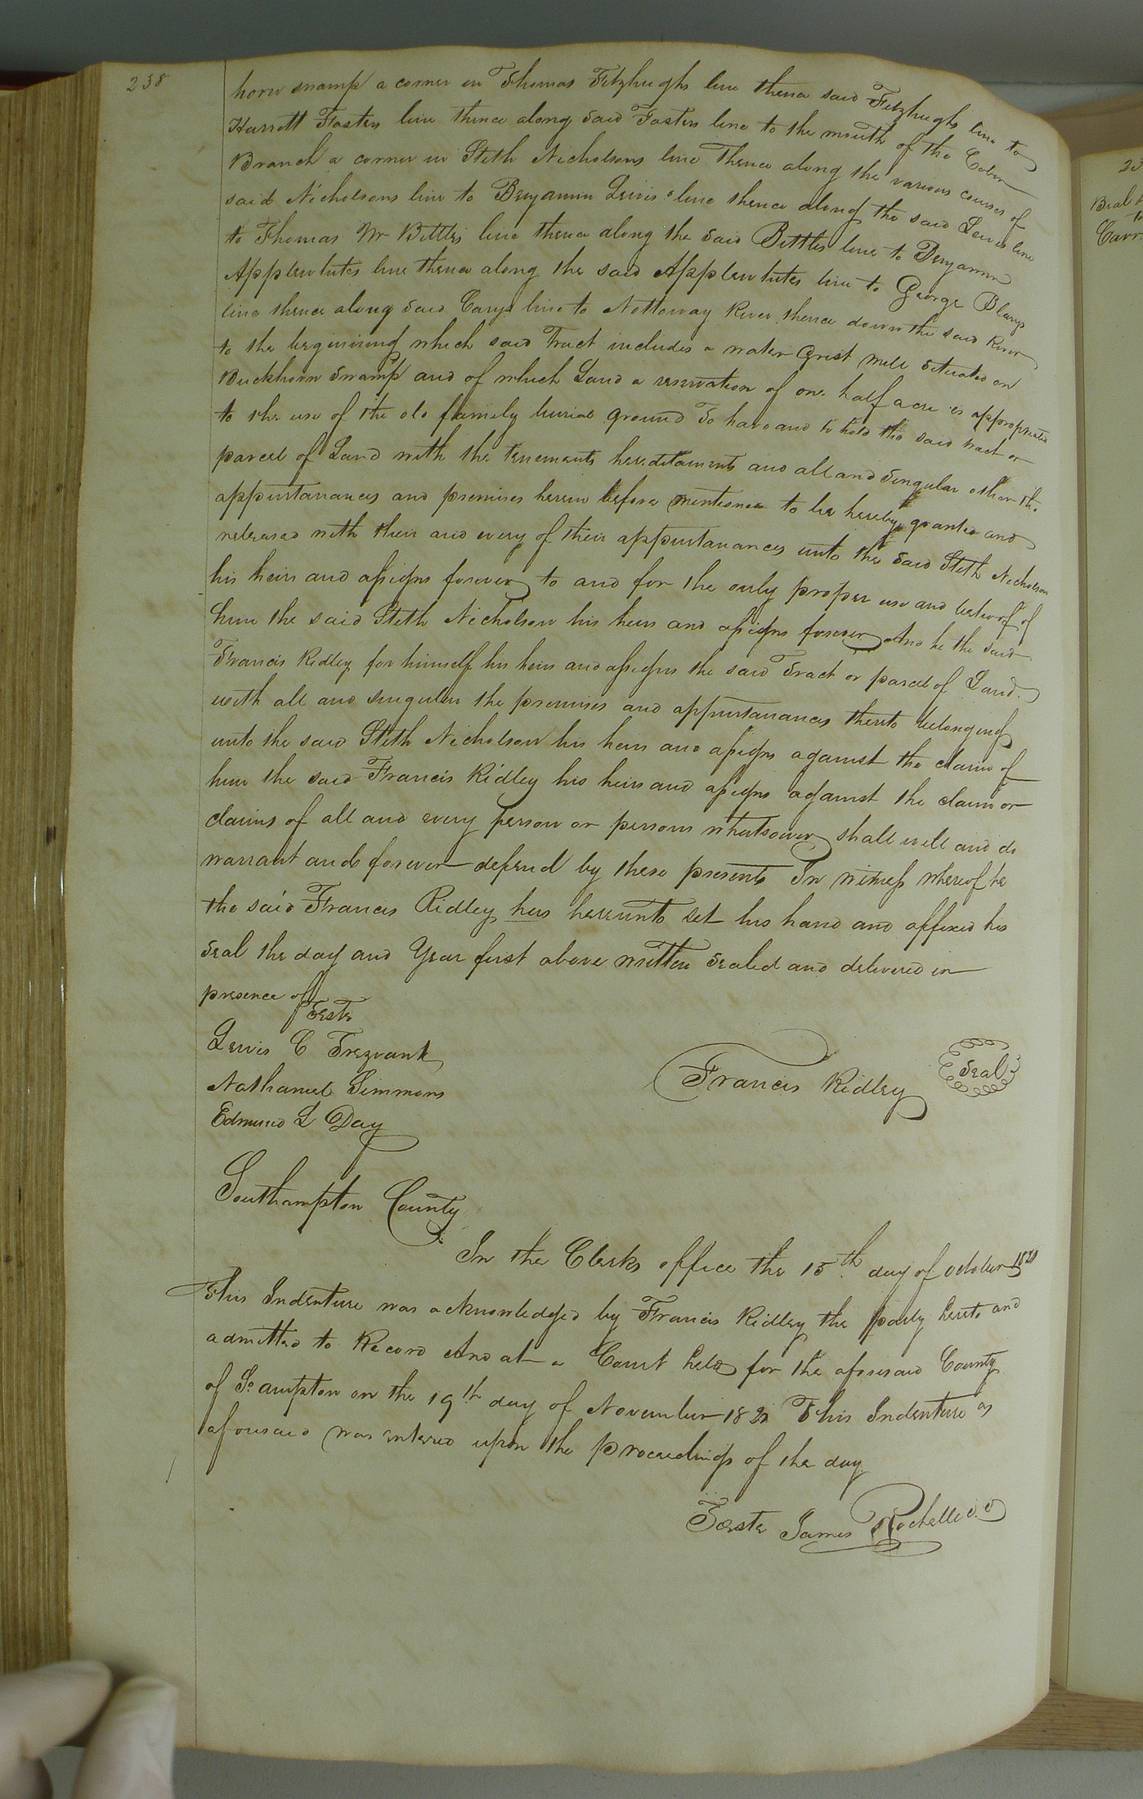 238
horn swamp a corner in Thomas Fitzhughs line thence said Fitzhughs line to
Harrott Fosters line thence along said Fosters line to the mouth of the Cabin
Branch a corner in Stith Nicholsons line Thence along the various courses of
said Nicholsons line to Benjamin Lewis's line thence along the said Lewis line
to Thomas W Bittles line thence along the said Bittles line to Benjamin
Applewhites line thence along the said Applewhites line to George B Carys
line thence along said Carys line to Nottoway River thence down the said River
to the beguining which said Tract includes a water Grist mill situated on
Buckhorn Swamp and of which Land a reservation of one half acre is appropriated
to the use of the old family burial ground To have and to hold the said tract or
parcel of Land with the tenements hereditaments and all and Singular other the
appurtanances and premises herein before mentioned to be hereby granted and
released with their and every of their appurtanances unto the said Stith Nicholson
his heirs and assigns forever to and for the only proper use and behoof of
him the said Stith Nicholson his heirs and assigns forever And he the said
Francis Ridley for himself his heirs and assigns the said Tract or parcel of Land
with all and singular the premises and appurtanances thereto belonging
unto the said Stith Nicholson his heirs and assigns against the claim of
him the said Francis Ridley his heirs and assigns against the claim or
claims of all and every person or persons whatsoever shall will and do
warrant and forever defend by these presents In witness whereof he
the said Francis Ridley has hereunto set his hand and affixed his
seal the day and Year first above written Sealed and delivered in
presence of
Teste
Lewis C Trezvant
Nathaniel Simmons
Francis Ridley Seal
Edmund L Day
Southampton County
In the Clerks office the 15th day of October 18
This Indenture was acknowledged by Francis Ridley the party hereto and
admitted to Record And at a Court held for the aforesaid County
of So ampton on the 19th day of November 18 This Indenture as
aforesaid was entered upon the proceedings of the day
Teste James Rochelle
23
Beal
to
Carr